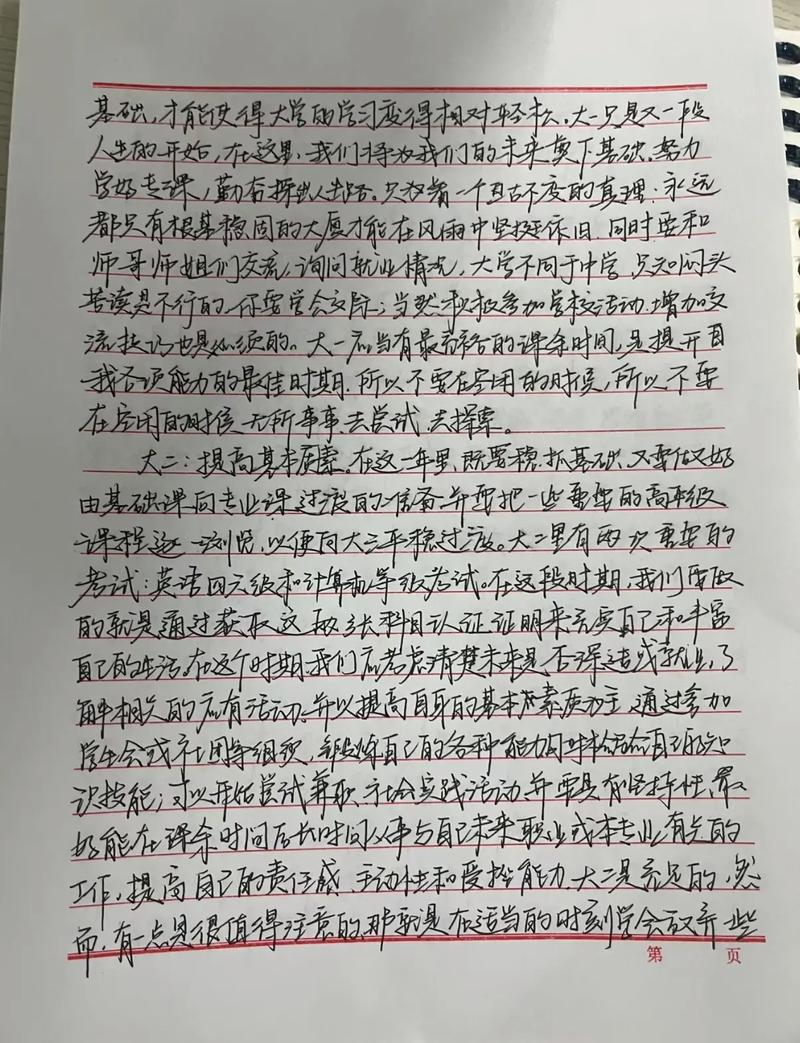 基础,才能使得大学的学习变得相对轻松。大一只是又一段
人生的开始,在这里,我们将为我们的未来奠下基础。努力
学好专课,勤奋探出人生路。只有着一个亘古不变的真理:永远
都只有根基稳固的大厦才能在风雨中坚挺依旧.同时要和
师哥师姐们交流,询问就业情况,大学不同于中学,只知闷头
苦读是不行的.你要学会交际;当然积极参加学校活动.增加交
流技巧也是必须的。大一应当有最充裕的课余时间,是提升自
我各项能力的最佳时期.所以不要在空闲的时候,所以不要
在空闲的时候无所事事.去尝试.去探索。
大二:提高基本素.在这一年里,既要稳抓基础、又要做好
由基础课向专业课过渡的准备.并要把一些重要的高年级
课程逐一浏览,以便向大三平稳过渡。大二里有两次重要的
考试:英语四六级和计算机等级考试。在这段时期,我们要做
的就是通过获取这两张科目认证证明来充实自己和丰富
自己的生活。在这个时期我们应考虑清楚未来是否深造或就业,了
解相关的应有活动。并以提高自身的基本素质为主,通过参加
学生会或社团等组织,锻炼自己的各种能力同时检验自己的知
识技能;可以开始尝试兼职、社会实践活动.并要具有坚持性、最
好能在课余时间后长时间从事与自己未来职业或本专业有关的
工作,提高自己的责任感、主动性和受挫能力.大二是充足的,然
而,有一点是很值得注意的.那就是在适当的时刻学会放弃一些
第 页